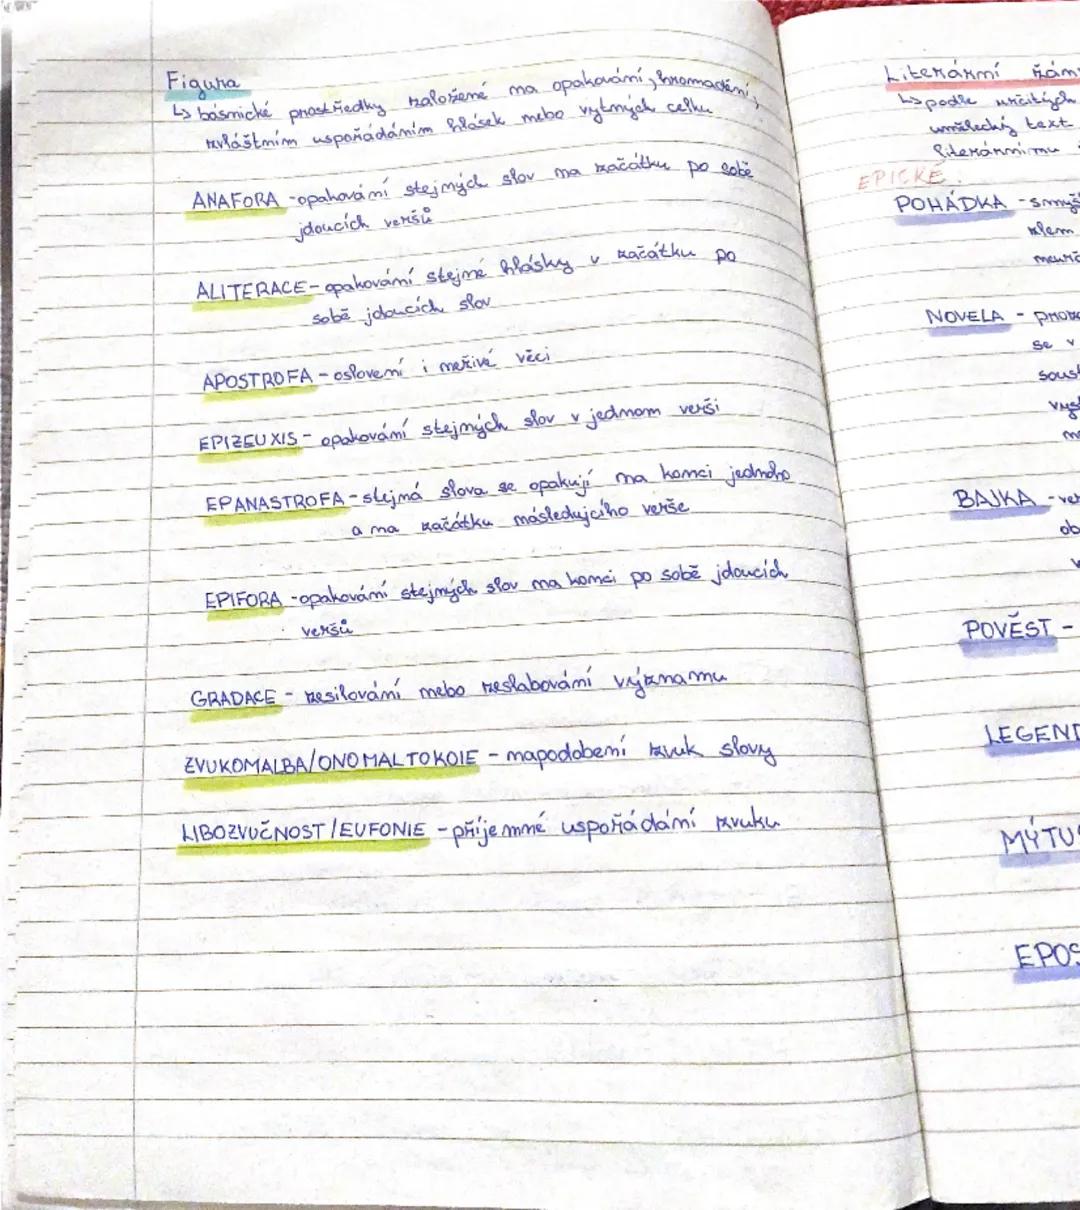 Figura
↳ básnické prostředky založené na opakování, hromadění,
zvláštním uspořádáním hlásek nebo vyšších celku
ANAFORA - opakování stejných slov na začátku po sobě
jdoucích veršů
ALITERACE - opakování stejné hlásky v začátku po
sobě jdoucích slov
APOSTROFA - oslovení i neživé věci
EPIZEUXIS - opakování stejných slov v jednom verši
EPANASTROFA - stejná slova se opakují na konci jednoho
a na začátku následujcího verše
EPIFORA - opakování stejných slov na konci po sobě jdoucích
veršů
GRADACE - zesilování nebo zeslabování významu
ZVUKOMALBA/ONOMALTOKOIE - napodobení zvuk slovy
LIBOZVUČNOST/EUFONIE - příjemné uspořádání zvuku
Literární žán
↳ podle určitých
umělecký text
literárnímu
EPICKÉ:
POHÁDKA - smyš
zlem
neurč
NOVELA - proz
se v
soust
BAJKA - ver
ob
POVĚST -
LEGEND
MÝTUS
EPOS